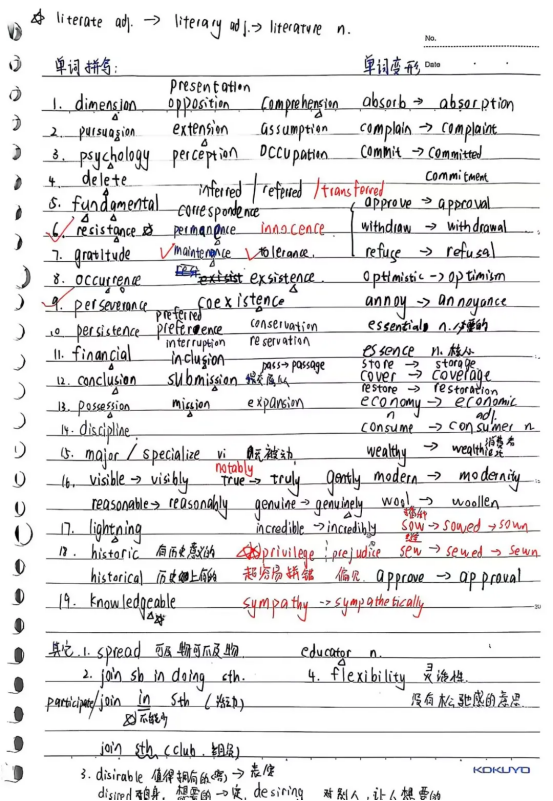 ☆ literate adj. → literary adj. → literature n.
No.
单词拼写: 单词变形 Date
presentation
1. dimension opposition comprehension absorb → absorption
2. pursuasion extension assumption complain → complaint
3. psychology perception occupation commit → committed
4. delete commitment
inferred / referred / transferred
5. fundamental correspondence approve → approval
6. resistance permanance innocence withdraw → withdrawal
7. gratitude maintenance tolerance. refuse → refusal
8. occurrence exsistence. optimistic → optimism
9. perseverance coexistence annoy → annoyance
preferred
10 persistence preference conservation essential n.
interruption reservation
11. financial inclusion essence n. 核心
pass → passage store → storage
12. conclusion submission cover → coverage
restore → restoration
13. possession mission expansion economy → economic
n adj.
14. discipline consume → consumer n
消费者
15. major / specialize vi 无被动 wealthy → wealth
notably
16. visible → visibly true → truly gently modern → modernity
reasonable → reasonably genuine → genuinely wool → woollen
17. lightning incredible → incredibly sow → sowed → sown
18. historic 有历史意义的 ☆privilege prejudice sew → sewed → sewn
historical 历史上有的 超容易拼错 偏见 approve → approval
19. knowledgeable sympathy → sympathetically
其它. 1. spread 可及物可不及物 educator n.
2. join sb in doing sth. 4. flexibility 灵活性.
participate/join in sth (活动) 没有松弛感的意思
join sth. (club. 组织)
3. disirable 值得拥有的
KOKUYO
desiring 对别人, 让人想要的